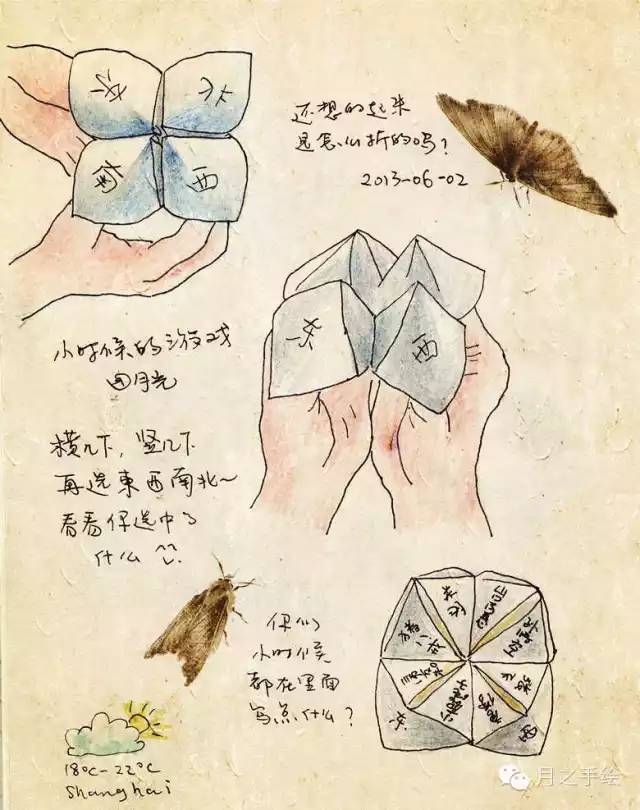 东 北
南 西
还想的起来
是怎么折的吗?
2013-06-02
东 西
小时候的游戏
月光
横几下, 竖几下
再选東西南北~
看看你选中了
什么
你们
小时候
都在里面
写点什么?
猪八戒
东 西
18°C-22°C
Shanghai
月之手绘